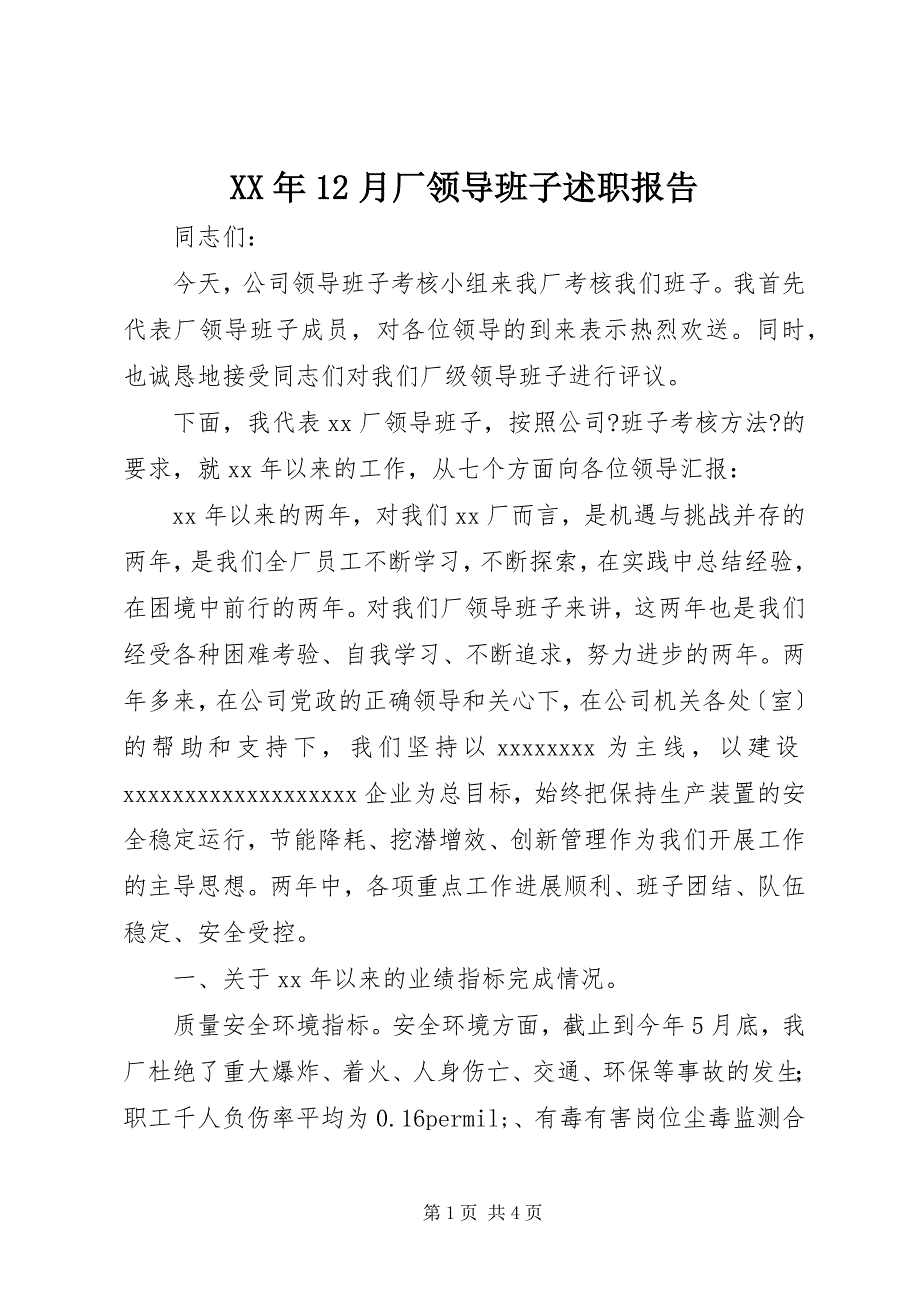 XX 年 12 月厂领导班子述职报告
同志们：
今天，公司领导班子考核小组来我厂考核我们班子。我首先
代表厂领导班子成员，对各位领导的到来表示热烈欢送。同时，
也诚恳地接受同志们对我们厂级领导班子进行评议。
下面，我代表 xx 厂领导班子，按照公司?班子考核方法?的
要求，就 xx 年以来的工作，从七个方面向各位领导汇报：
xx 年以来的两年，对我们 xx 厂而言，是机遇与挑战并存的
两年，是我们全厂员工不断学习，不断探索，在实践中总结经验，
在困境中前行的两年。对我们厂领导班子来讲，这两年也是我们
经受各种困难考验、自我学习、不断追求，努力进步的两年。两
年多来，在公司党政的正确领导和关心下，在公司机关各处〔室〕
的帮助和支持下，我们坚持以 xxxxxxxx 为主线，以建设
xxxxxxxxxxxxxxxxxxx 企业为总目标，始终把保持生产装置的安
全稳定运行，节能降耗、挖潜增效、创新管理作为我们开展工作
的主导思想。两年中，各项重点工作进展顺利、班子团结、队伍
稳定、安全受控。
一、关于 xx 年以来的业绩指标完成情况。
质量安全环境指标。安全环境方面，截止到今年 5 月底，我
厂杜绝了重大爆炸、着火、人身伤亡、交通、环保等事故的发生；
职工千人负伤率平均为 0.16permil;、有毒有害岗位尘毒监测合
第 1 页 共 4 页